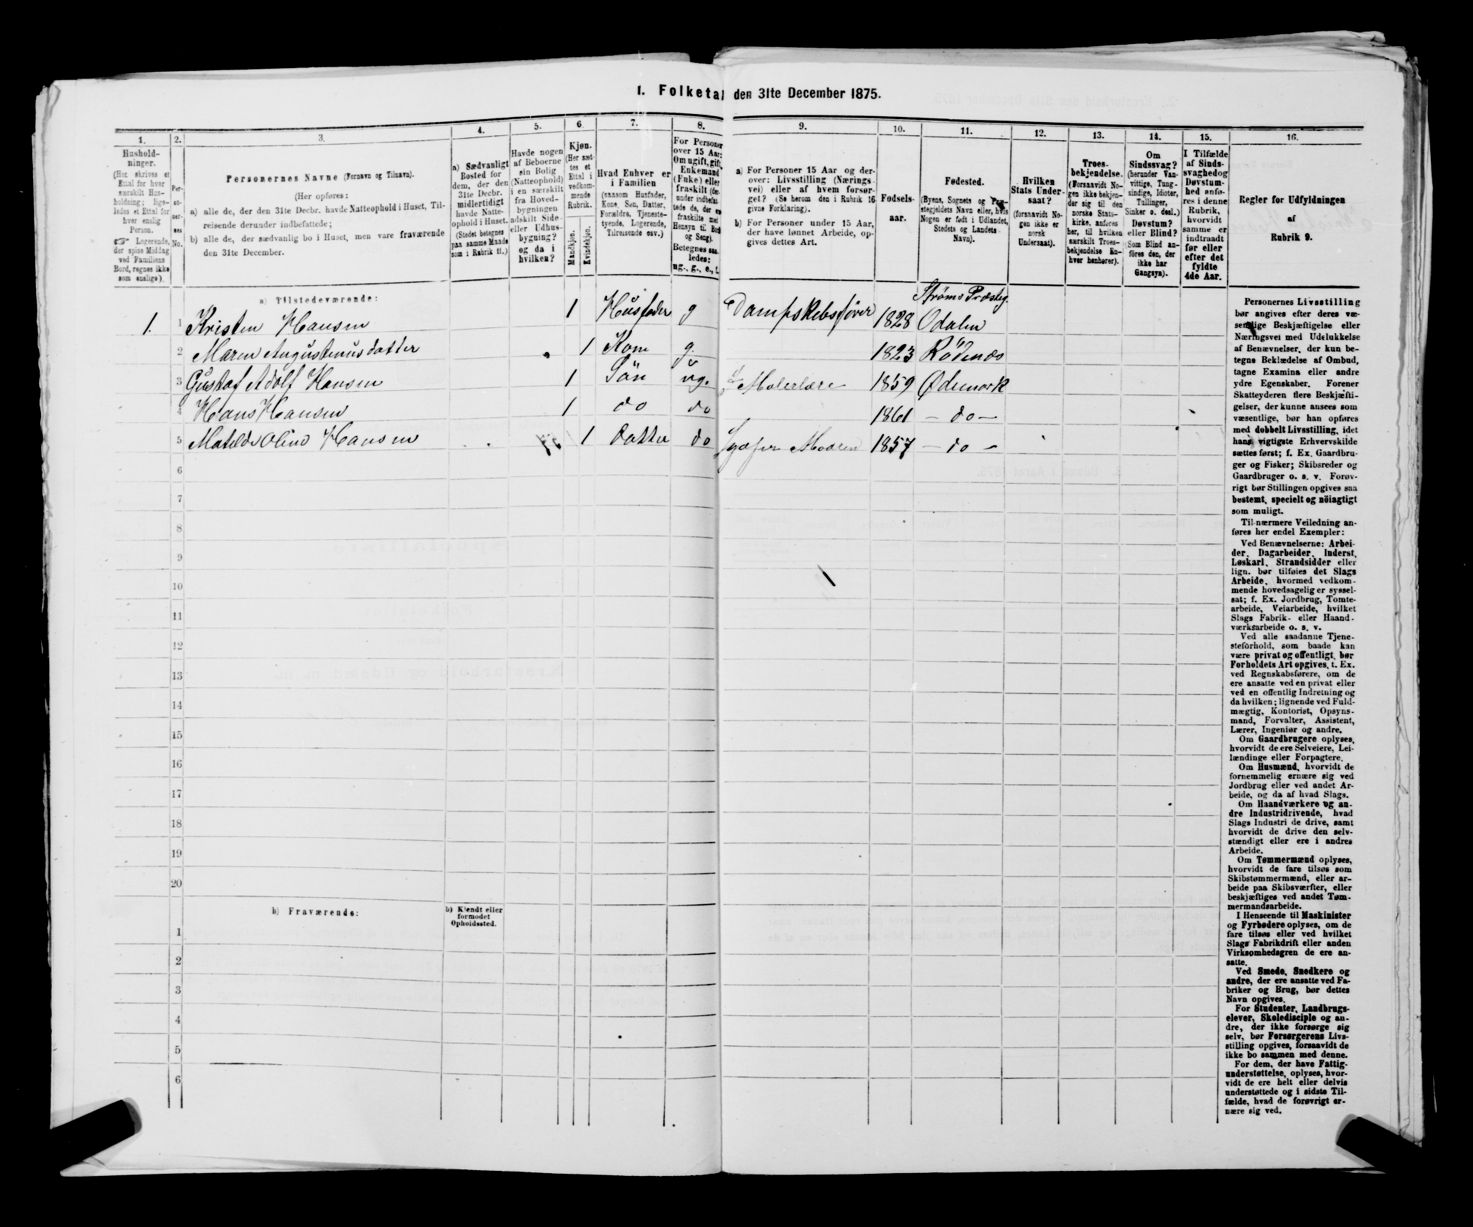 1. Folketal den 31te December 1875.
1.
2.
3.
4.
5.
6.
7.
8.
9.
10.
11.
12.
13.
14.
15.
16.
Hushold-
ninger.
(Her skrives et
Ettal for hver
særskilt Hus-
holdning; lige-
ledes et Ettal for
hver enslig
Person.
☞ Logerende,
der spise Middag
ved Familiens
Bord, regnes ikke
som enslige).
Per-
so-
ner-
nes
No.
Personernes Navne (Fornavn og Tilnavn).
(Her opføres:
a) alle de, der den 31te Decbr. havde Natteophold i Huset, Til-
reisende derunder indbefattede;
b) alle de, der sædvanlig bo i Huset, men vare fraværende
den 31te December.
a) Sædvanligt
Bosted for
dem, der den
31te Decbr.
midlertidigt
havde Natte-
ophold i Huset.
(Stedet betegnes
paa samme Maade
som i Rubrik 11.)
Havde nogen
af Beboerne
sin Bolig
(Natteophold)
i en særskilt
fra Hoved-
bygningen
adskilt Side-
eller Udhus-
bygning?
og da i
hvilken?
Kjøn.
(Her sæt-
tes et
Ettal i
vedkom-
mende
Rubrik.
Mandkjøn.
Kvindekjøn.
Hvad Enhver er
i Familien
(saasom Husfader,
Kone, Søn, Datter,
Forældre, Tjeneste-
tyende, Logerende,
Tilreisende osv.)
For Personer
over 15 Aar:
Om ugift, gift,
Enkemand
(Enke) eller
fraskilt
Betegnes saa-
ledes:
ug., g., e., f.
a) For Personer 15 Aar og der-
over: Livsstilling (Nærings-
vei) eller af hvem forsør-
get? (Se herom den i Rubrik 16
givne Forklaring).
b) For Personer under 15 Aar,
der have lønnet Arbeide, op-
gives dettes Art.
Fødsels-
aar.
Fødested.
(Byens, Sognets og Præ-
stegjeldets Navn eller, hvis
Nogen er født i Udlandet,
Stedets og Landets
Navn).
Hvilken
Stats Under-
saat?
(forsaavidt No-
gen ikke er
norsk
Undersaat).
Troes-
bekjendelse.
(Forsaavidt No-
gen ikke bekjen-
der sig til den
norske Stats-
kirke, anføres
her, til hvilken
særskilt Troes-
bekjendelse En-
hver henhører).
Om
Sindssvag?
(herunder Van-
vittige, Tung-
sindige, Idioter,
Tullinger,
Sinker o. desl.)
Døvstum?
eller Blind?
(Som Blind an-
føres den, der
ikke har
Gangsyn).
I Tilfælde
af Sinds-
svaghed og
Døvstum-
hed anfø-
res i denne
Rubrik,
hvorvidt
samme er
indtraadt
før eller
efter det
fyldte
4de Aar.
Regler for Udfyldningen
af
Rubrik 9.
a) Tilstedeværende:
1. 1 Kristen Hansen 1 Husfader g Dampskibsfører 1828 Strøms Præstg. Odalen
2 Maren Augustinusdatter 1 Kone g. 1823 Rødenæs
3 Gustaf Adolf Hansen 1 Søn ug. i Malerlære 1859 Ødemork
4 Hans Hansen 1 do do 1861 – do –
5 Matilde Oline Hansen 1 Datter do 1857 – do –
6
7
8
9
10
11
12
13
14
15
16
17
18
19
20
b) Fraværende:
b) Kjendt eller
formodet
Opholdssted.
1
2
3
4
5
6
Personernes Livsstilling
bør angives efter deres væ-
sentlige Beskjæftigelse eller
Næringsvei med Udelukkelse
af Benævnelser, der kun be-
tegne Beklædelse af Ombud,
tagne Examina eller andre
ydre Egenskaber. Forener
Skatteyderen flere Beskjæfti-
gelser, der kunne ansees som
væsentlige, bør han opføres
med dobbelt Livsstilling, idet
hans vigtigste Erhvervskilde
sættes først; f. Ex. Gaardbru-
ger og Fisker; Skibsreder og
Gaardbruger o. s. v. Forøv-
rigt bør Stillingen opgives saa
bestemt, specielt og nöiagtigt
som muligt.
Til nærmere Veiledning an-
føres her endel Exempler:
Ved Benævnelserne: Arbei-
der, Dagarbeider, Inderst,
Løskarl, Strandsidder eller
lign. bør tilføies det Slags
Arbeide, hvormed vedkom-
mende hovedsagelig er syssel-
sat; f. Ex. Jordbrug, Tomte-
arbeide, Veiarbeide, hvilket
Slags Fabrik- eller Haand-
værksarbeide o. s. v.
Ved alle saadanne Tjene-
steforhold, som baade kan
være privat og offentligt, bør
Forholdets Art opgives, t. Ex.
ved Regnskabsførere, om de
ere ansatte ved en privat eller
ved en offentlig Indretning og
da hvilken; lignende ved Fuld-
mægtig, Kontorist, Opsyns-
mand, Forvalter, Assistent,
Lærer, Ingeniør og andre.
Om Gaardbrugere oplyses,
hvorvidt de ere Selveiere, Lei-
lændinge eller Forpagtere.
Om Husmænd, hvorvidt de
fornemmelig ernære sig ved
Jordbrug eller ved andet Ar-
beide, og da af hvad Slags.
Om Haandværkere og an-
dre Industridrivende, hvad
Slags Industri de drive, samt
hvorvidt de drive den selv-
stændigt eller ere i andres
Arbeide.
Om Tømmermænd oplyses,
hvorvidt de fare tilsøs som
Skibstømmermænd, eller ar-
beide paa Skibsværfter, eller
beskjæftiges ved andet Tøm-
mermandsarbeide.
I Henseende til Maskinister
og Fyrbødere oplyses, om de
fare tilsøs eller ved hvilket
Slags Fabrikdrift eller anden
Virksomhedsgren de ere an-
satte.
Ved Smede, Snedkere og
andre, der ere ansatte ved Fa-
briker og Brug, bør dettes
Navn opgives.
For Studenter, Landbrugs-
elever, Skoledisciple og an-
dre, der ikke forsørge sig
selv, bør Forsørgerens Livs-
stilling opgives, forsaavidt de
ikke bo sammen med denne.
For dem, der have Fattig-
understøttelse, oplyses, hvor-
vidt de ere helt eller delvis
understøttede og i sidste Til-
fælde, hvad de forøvrigt er-
nære sig ved.